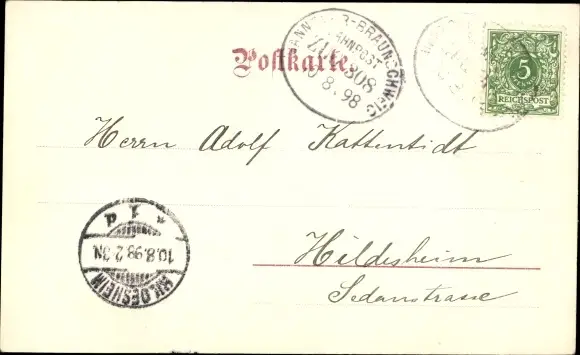 Postkarte
HANNOVER-BRAUNSCHWEIG
BAHNPOST
ZUG 308
10 8. 98
5
REICHSPOST
Herrn Adolf Kattentidt
Hildesheim
Sedanstrasse
HILDESHEIM
10.8.98.2-3N.